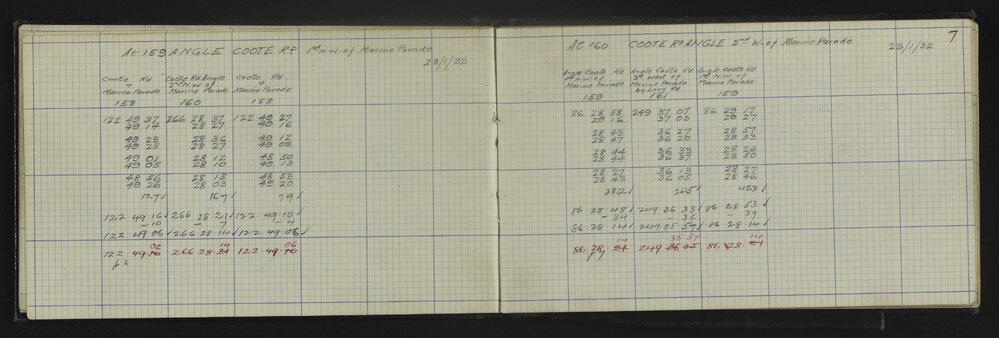 At 159 ANGLE COOTE RD 1st N.W. of Marine Parade
23/1/32
Coote Rd Coote Rd Angle Coote Rd
+ 2nd N.W. of +
Marine Parade Marine Parade Marine Parade
158 160 158
122 49 37 266 28 37 122 49 27
49 14 28 27 49 16
49 23 28 36 49 12
49 23 28 27 49 08
49 01 28 12 48 50
49 05 28 10 49 13
48 56 28 15 48 53
49 26 28 03 49 20
127/ 167/ 79/
122 49 16/ 266 28 21/ 122 49 10/
-10 - 7 -4
122 49 06/ 266 28 14/ 122 49 06/
06 14 06
122 49.16 266 28.21 122.49.10
7
At 160 COOTE RD ANGLE 2nd W. of Marine Parade
23/1/32
Angle Coote Rd Angle Coote Rd Angle Coote Rd
1st N.W. of 3rd West of 1st N.W. of
Marine Parade Marine Parade Marine Parade
by Lucy Rd
159 161 159
86 28 58 249 37 07 86 29 17
29 16 37 03 29 27
28 43 36 27 28 57
28 47 36 20 28 53
28 44 36 33 28 26
28 44 36 37 28 50
28 27 36 13 28 27
28 43 36 05 28 46
382/ 265/ 423/
86 28 48/ 249 36 33/ 86 28 53/
-34 - 36 - 39
86 28 14/ 249 35 57/ 86 28 14/
14 35 57 14
86.28. 21 249 36 05 86 28.21